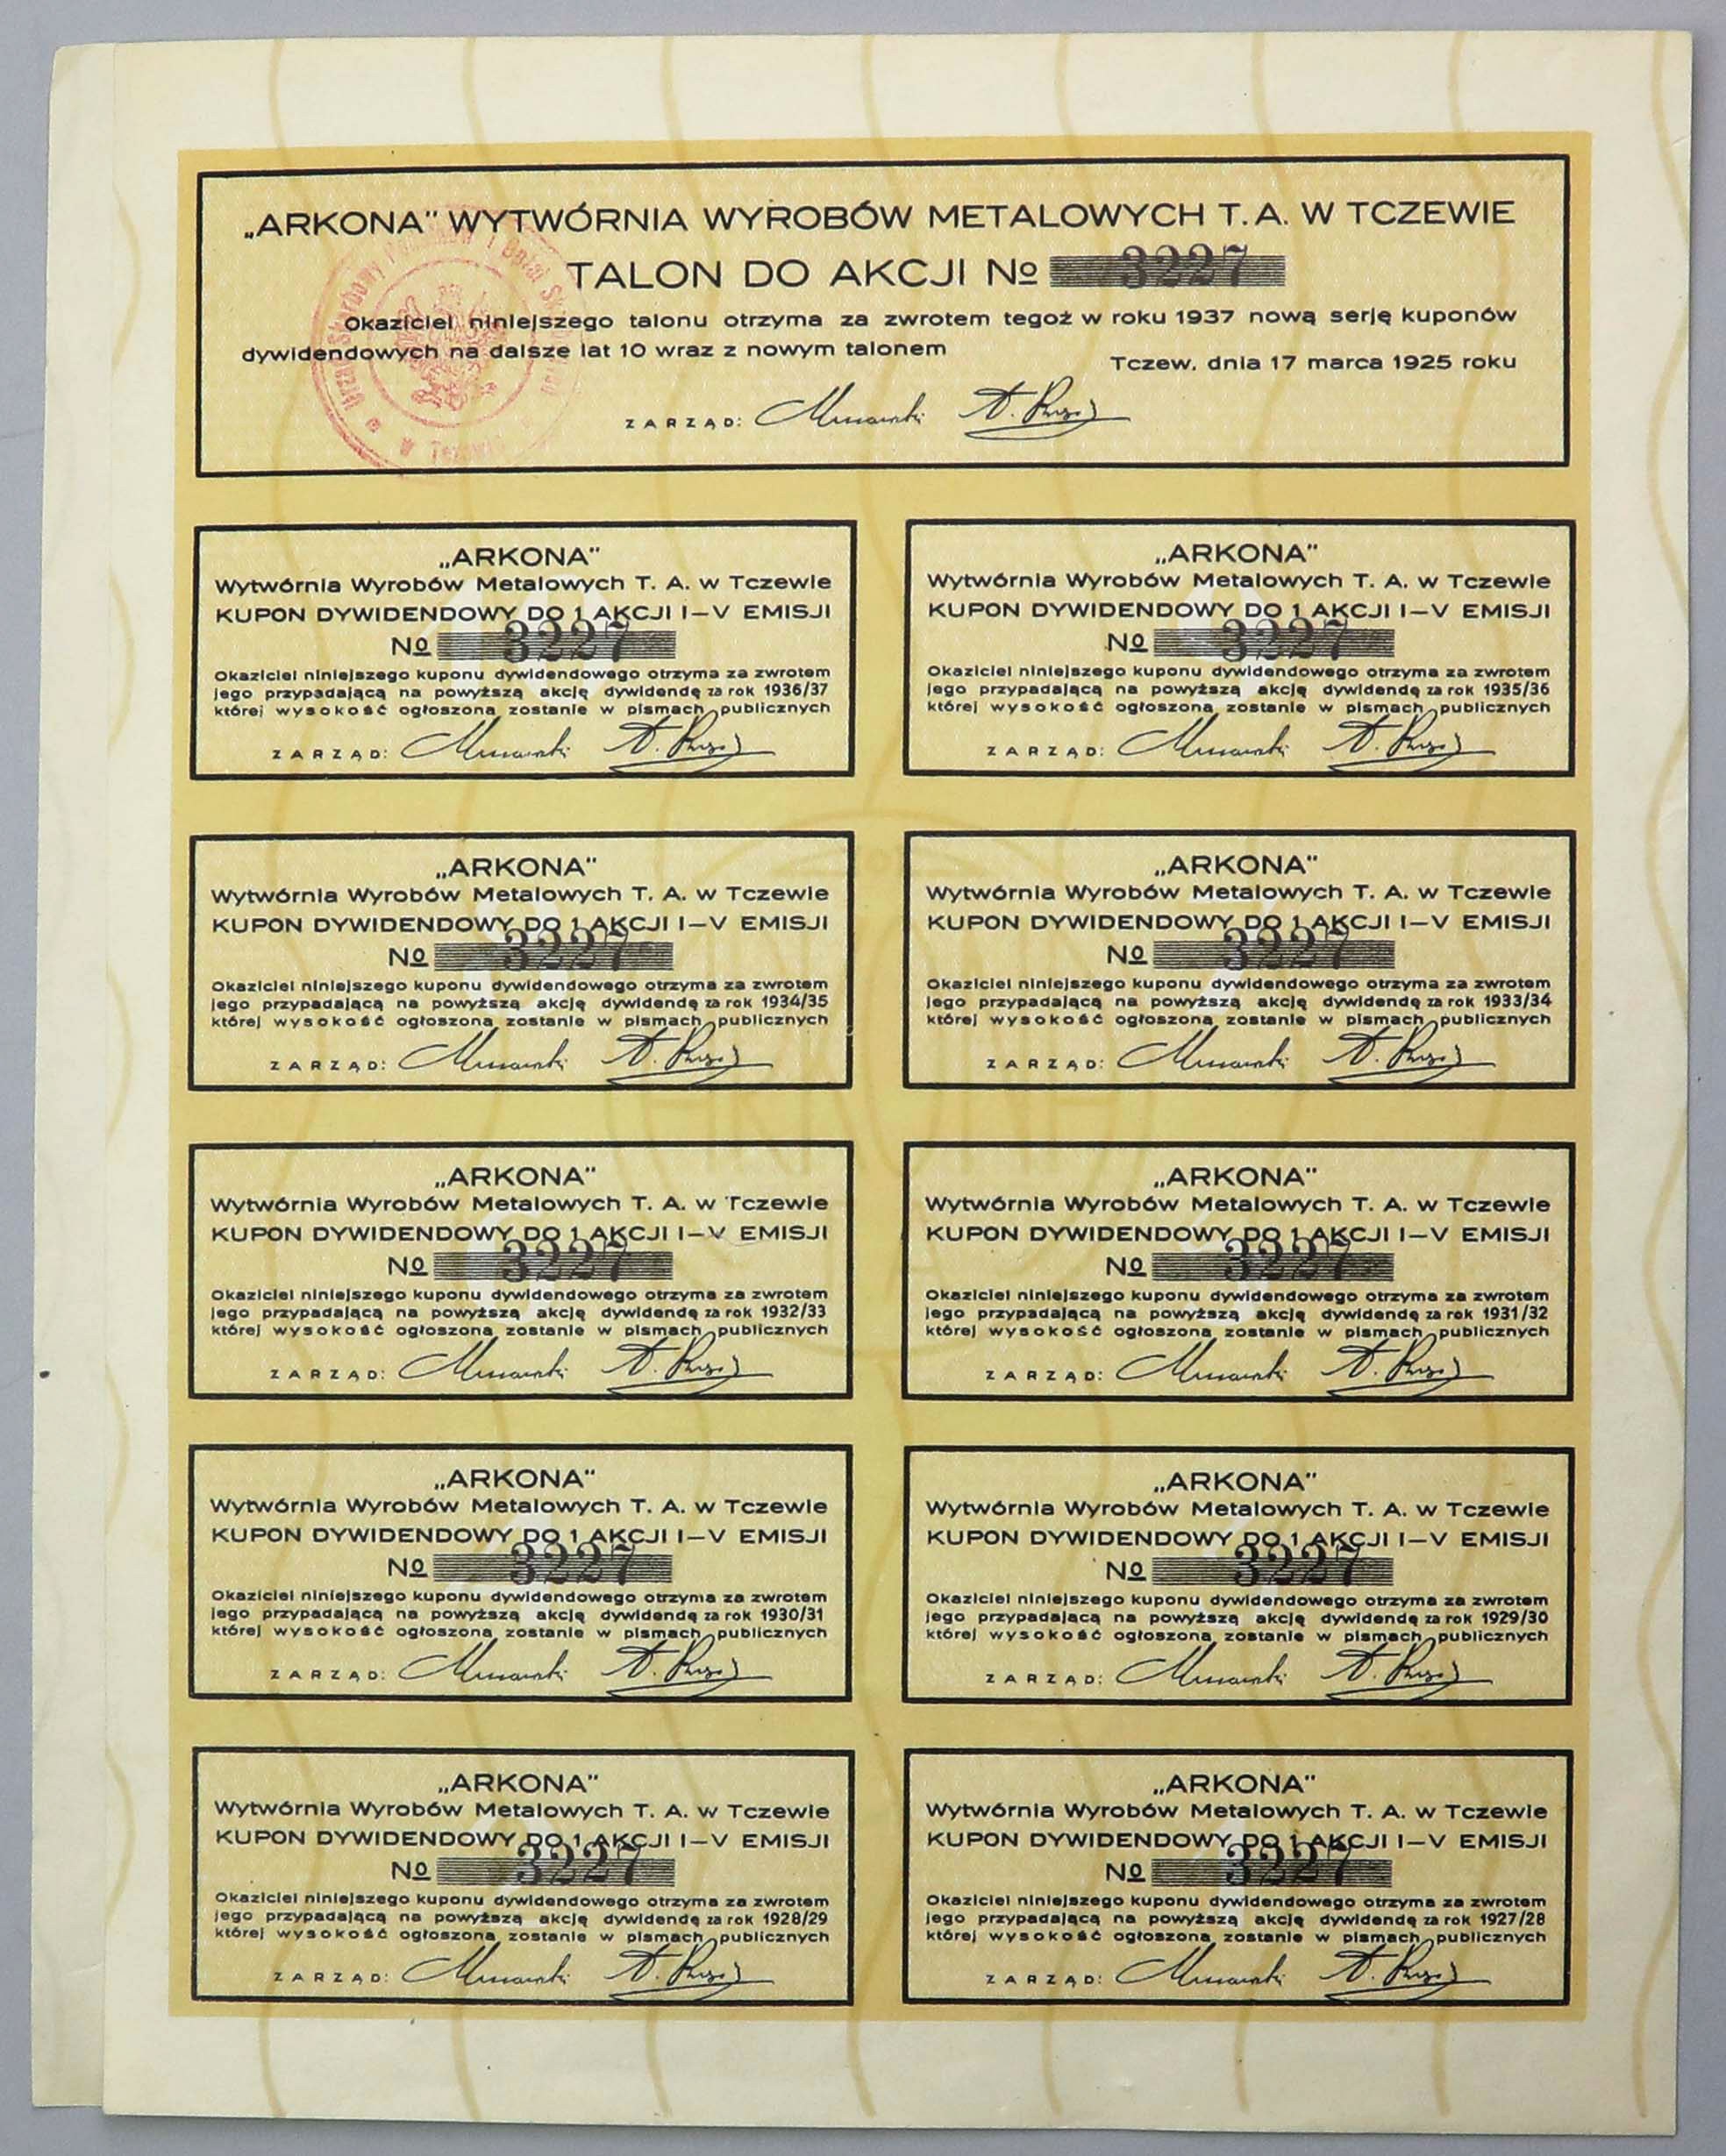 „ARKONA" WYTWÓRNIA WYROBÓW METALOWYCH T. A. W TCZEWIE
TALON DO AKCJI № 3227
Okaziciel niniejszego talonu otrzyma za zwrotem tegoż w roku 1937 nową serję kuponów
dywidendowych na dalsze lat 10 wraz z nowym talonem
Tczew, dnia 17 marca 1925 roku
ZARZĄD:
„ARKONA"
Wytwórnia Wyrobów Metalowych T. A. w Tczewie
KUPON DYWIDENDOWY DO 1 AKCJI I–V EMISJI
№ 3227
Okaziciel niniejszego kuponu dywidendowego otrzyma za zwrotem
jego przypadającą na powyższą akcję dywidendę za rok 1936/37
której wysokość ogłoszona zostanie w pismach publicznych
ZARZĄD:
„ARKONA"
Wytwórnia Wyrobów Metalowych T. A. w Tczewie
KUPON DYWIDENDOWY DO 1 AKCJI I–V EMISJI
№ 3227
Okaziciel niniejszego kuponu dywidendowego otrzyma za zwrotem
jego przypadającą na powyższą akcję dywidendę za rok 1935/36
której wysokość ogłoszona zostanie w pismach publicznych
ZARZĄD:
„ARKONA"
Wytwórnia Wyrobów Metalowych T. A. w Tczewie
KUPON DYWIDENDOWY DO 1 AKCJI I–V EMISJI
№ 3227
Okaziciel niniejszego kuponu dywidendowego otrzyma za zwrotem
jego przypadającą na powyższą akcję dywidendę za rok 1934/35
której wysokość ogłoszona zostanie w pismach publicznych
ZARZĄD:
„ARKONA"
Wytwórnia Wyrobów Metalowych T. A. w Tczewie
KUPON DYWIDENDOWY DO 1 AKCJI I–V EMISJI
№ 3227
Okaziciel niniejszego kuponu dywidendowego otrzyma za zwrotem
jego przypadającą na powyższą akcję dywidendę za rok 1933/34
której wysokość ogłoszona zostanie w pismach publicznych
ZARZĄD:
„ARKONA"
Wytwórnia Wyrobów Metalowych T. A. w Tczewie
KUPON DYWIDENDOWY DO 1 AKCJI I–V EMISJI
№ 3227
Okaziciel niniejszego kuponu dywidendowego otrzyma za zwrotem
jego przypadającą na powyższą akcję dywidendę za rok 1932/33
której wysokość ogłoszona zostanie w pismach publicznych
ZARZĄD:
„ARKONA"
Wytwórnia Wyrobów Metalowych T. A. w Tczewie
KUPON DYWIDENDOWY DO 1 AKCJI I–V EMISJI
№ 3227
Okaziciel niniejszego kuponu dywidendowego otrzyma za zwrotem
jego przypadającą na powyższą akcję dywidendę za rok 1931/32
której wysokość ogłoszona zostanie w pismach publicznych
ZARZĄD:
„ARKONA"
Wytwórnia Wyrobów Metalowych T. A. w Tczewie
KUPON DYWIDENDOWY DO 1 AKCJI I–V EMISJI
№ 3227
Okaziciel niniejszego kuponu dywidendowego otrzyma za zwrotem
jego przypadającą na powyższą akcję dywidendę za rok 1930/31
której wysokość ogłoszona zostanie w pismach publicznych
ZARZĄD:
„ARKONA"
Wytwórnia Wyrobów Metalowych T. A. w Tczewie
KUPON DYWIDENDOWY DO 1 AKCJI I–V EMISJI
№ 3227
Okaziciel niniejszego kuponu dywidendowego otrzyma za zwrotem
jego przypadającą na powyższą akcję dywidendę za rok 1929/30
której wysokość ogłoszona zostanie w pismach publicznych
ZARZĄD:
„ARKONA"
Wytwórnia Wyrobów Metalowych T. A. w Tczewie
KUPON DYWIDENDOWY DO 1 AKCJI I–V EMISJI
№ 3227
Okaziciel niniejszego kuponu dywidendowego otrzyma za zwrotem
jego przypadającą na powyższą akcję dywidendę za rok 1928/29
której wysokość ogłoszona zostanie w pismach publicznych
ZARZĄD:
„ARKONA"
Wytwórnia Wyrobów Metalowych T. A. w Tczewie
KUPON DYWIDENDOWY DO 1 AKCJI I–V EMISJI
№ 3227
Okaziciel niniejszego kuponu dywidendowego otrzyma za zwrotem
jego przypadającą na powyższą akcję dywidendę za rok 1927/28
której wysokość ogłoszona zostanie w pismach publicznych
ZARZĄD: